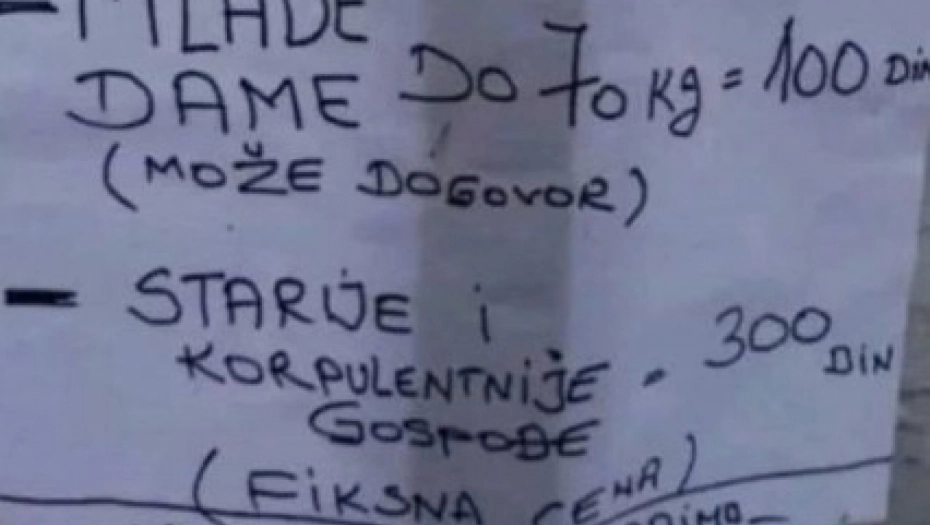 - MLADE
DAME DO 70 Kg = 100 DIN
(MOŽE DOGOVOR)
- STARIJE i
KORPULENTNIJE - 300 DIN
GOSPOĐE
(FiKSNA CENA)